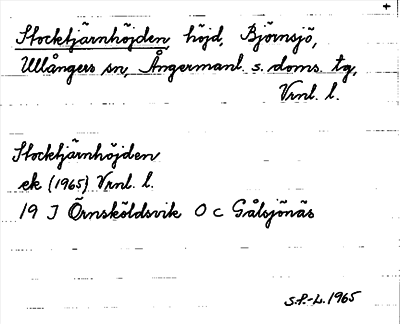 Stocktjärnhöjden, höjd, Björnsjö,
Ullångers sn, Ångermanl. s. doms. tg,
Vrnl. l.
Stocktjärnhöjden
ek (1965) Vrnl. l.
19 J Örnsköldsvik 0 c Gålsjönäs
S.P.-L. 1965